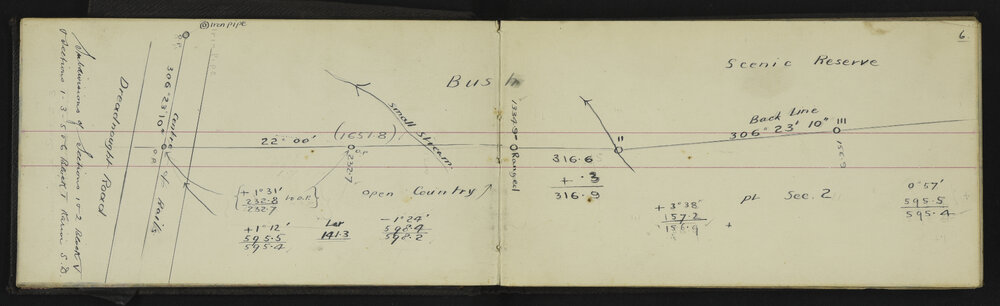 6.
Iron pipe
Bush
Scenic Reserve
Subdivisions of Sections 1 & 2 Block V
& Sections 1 · 3 · 5 & 6 Block V Karin S.D.
Dreadnought Road
O.P.
306° 23' 10"
O.P.
Centre of Rails
22° 00'
(1651.8)
O.P.
232.7
small stream
open Country
1334.9
Ranged
+ 1° 31'
232.8 to O.P.
232.7
+ 1° 12'
595.5
595.4
141.3
- 1° 24'
598.4
598.2
316.6
+ .3
316.9
II
Back Line
306° 23' 10"
III
156.9
pt Sec. 2
+ 3° 38'
157.2
156.9
+
0° 57'
595.5
595.4